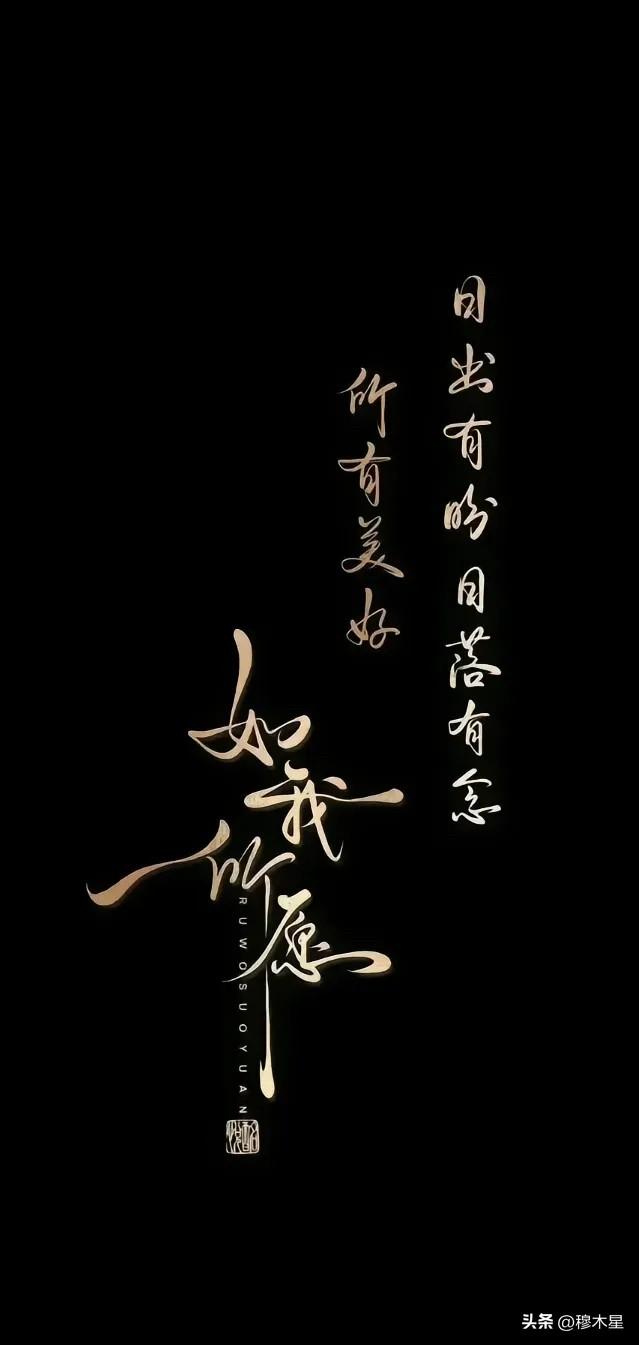 日出有盼日落有念
所有美好
如我所愿
RUWOSUOYUAN
头条 @穆木星